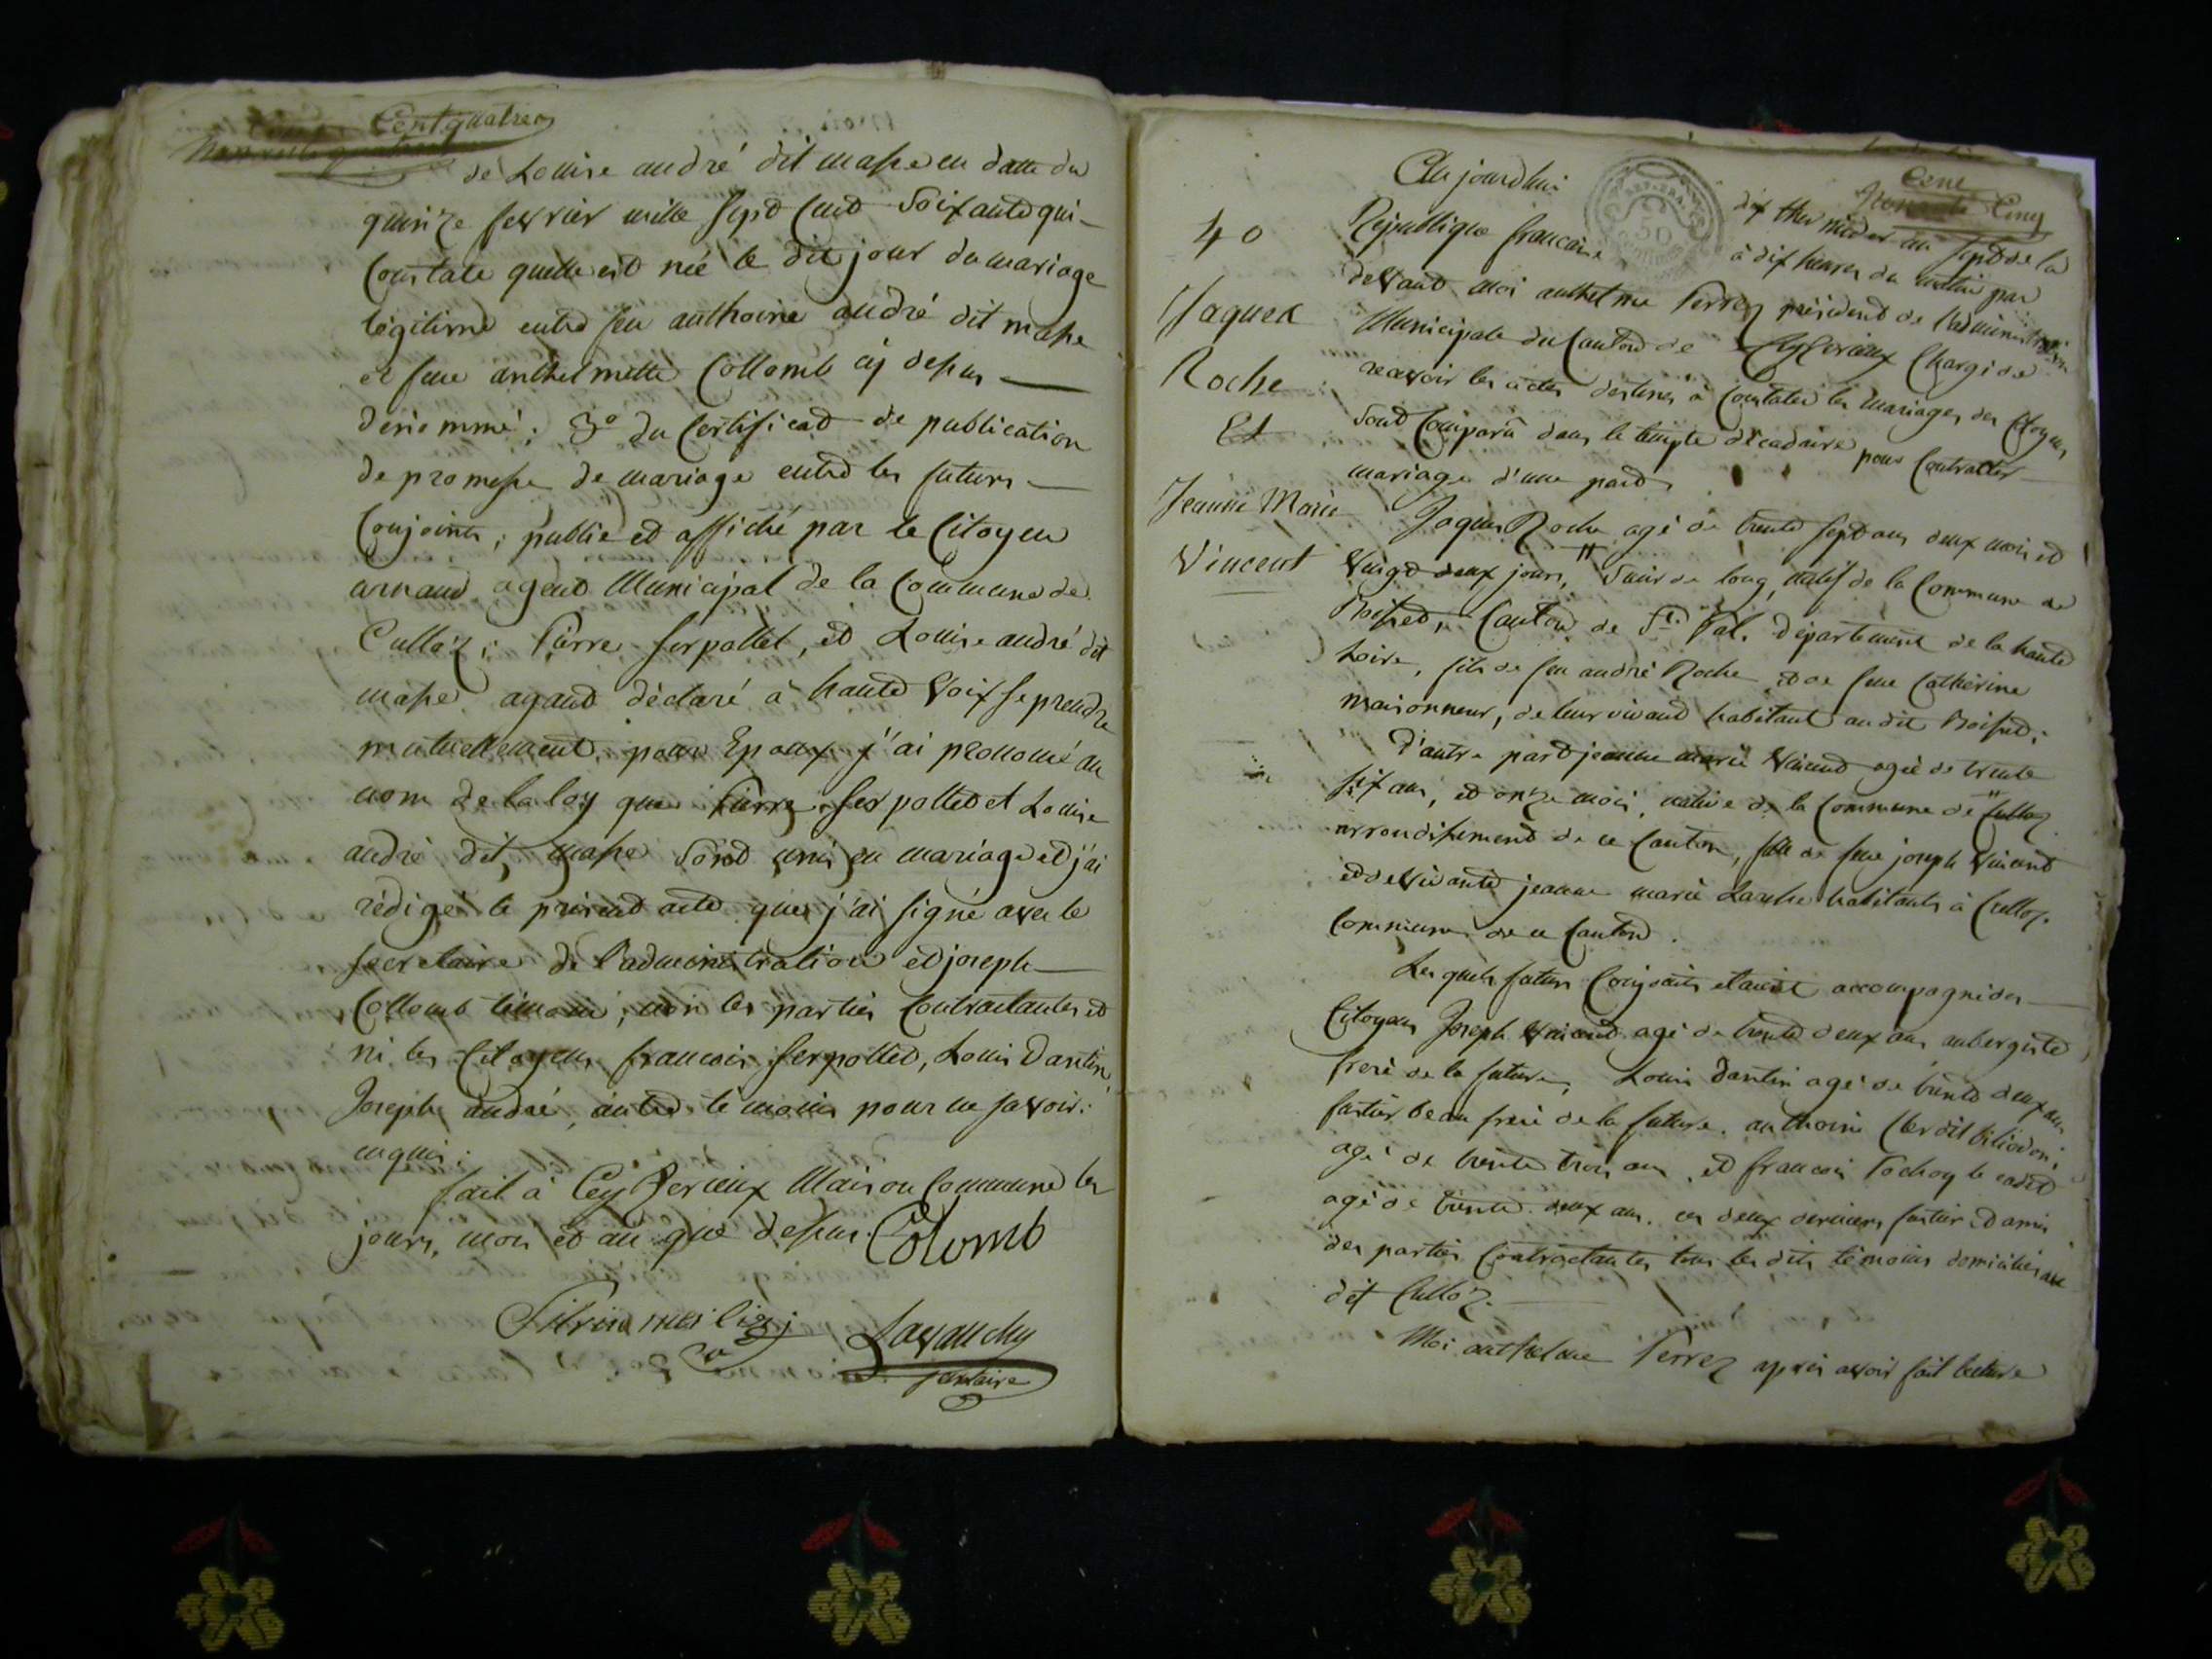 Cent quatre
de Louise andré dit masse en datte du
quinze fevrier mille sept cent soixante qui
constate quelle est née le dit jour du mariage
légitime entre feu anthoine andré dit masse
et feue anthelmette Collomb cy dessus
dénommé; 3º du certificat de publication
de promesse de mariage entre les futurs
conjoints, publié et affiché par le Citoyen
arnaud agent Municipal de la Commune de
Culloz; Pierre serpollet, et Louise andré dit
masse ayant déclaré à haute voix se prendre
mutuellement pour Epoux j'ai prononcé au
nom de la loy que Pierre serpollet et Louise
andré dit masse sont unis en mariage et j'ai
rédigé le présent acte que j'ai signé avec le
secretaire de l'administration et joseph
Collomb témoin; non les parties contractantes et
ni les Citoyens francois serpollet, Louis Dantin
Joseph andré, autre témoins pour ne savoir.
enquis.
fait à Ceyzerieux Maison Commune les
jours, mois et an que dessus Colomb
Lavanchy
secretaire
Cent
Cinq
Aujourdhui dix thermidor an sept de la
40
République francaise à dix heures du matin par
devant moi anthelme Perrez président de l'administration
Jaques
Municipale du Canton de Ceyzerieux Chargé de
Roche
recevoir les actes destinés à constater les mariages des Citoyens
Et
sont comparû dans le temple décadaire pour contracter
mariage d'une part
Jeanne Marie
Jaques Roche agé de trente sept ans deux mois et
Vincent
vingt deux jours, Scieur de long, natif de la Commune de
Boisset, Canton de St. Pal. département de la haute
Loire, fils de feu andré Roche et de feue Catherine
maisonneur, de leur vivant habitant au dit Boisset;
D'autre part jeanne marie vincent agée de trente
six ans, et onze mois, native de la Commune de Culloz
arrondissement de ce Canton, fille de feue joseph vincent
et de vivante jeanne marie habitants à Culloz.
Commune de ce Canton.
Les quels futurs Conjoints etaient accompagnés des
Citoyens Joseph vincent agé de trente deux ans aubergiste
frere de la future, Louis Dantin agé de trente deux ans
beau frere de la future. anthoine dit
agé de trente trois ans, et francois Pochoy le cadet
agé de trente deux ans, ces deux derniers et amis
des parties contractantes tous les dits témoins domiciliés au
dit Culloz.
Moi anthelme Perrez après avoir fait lecture